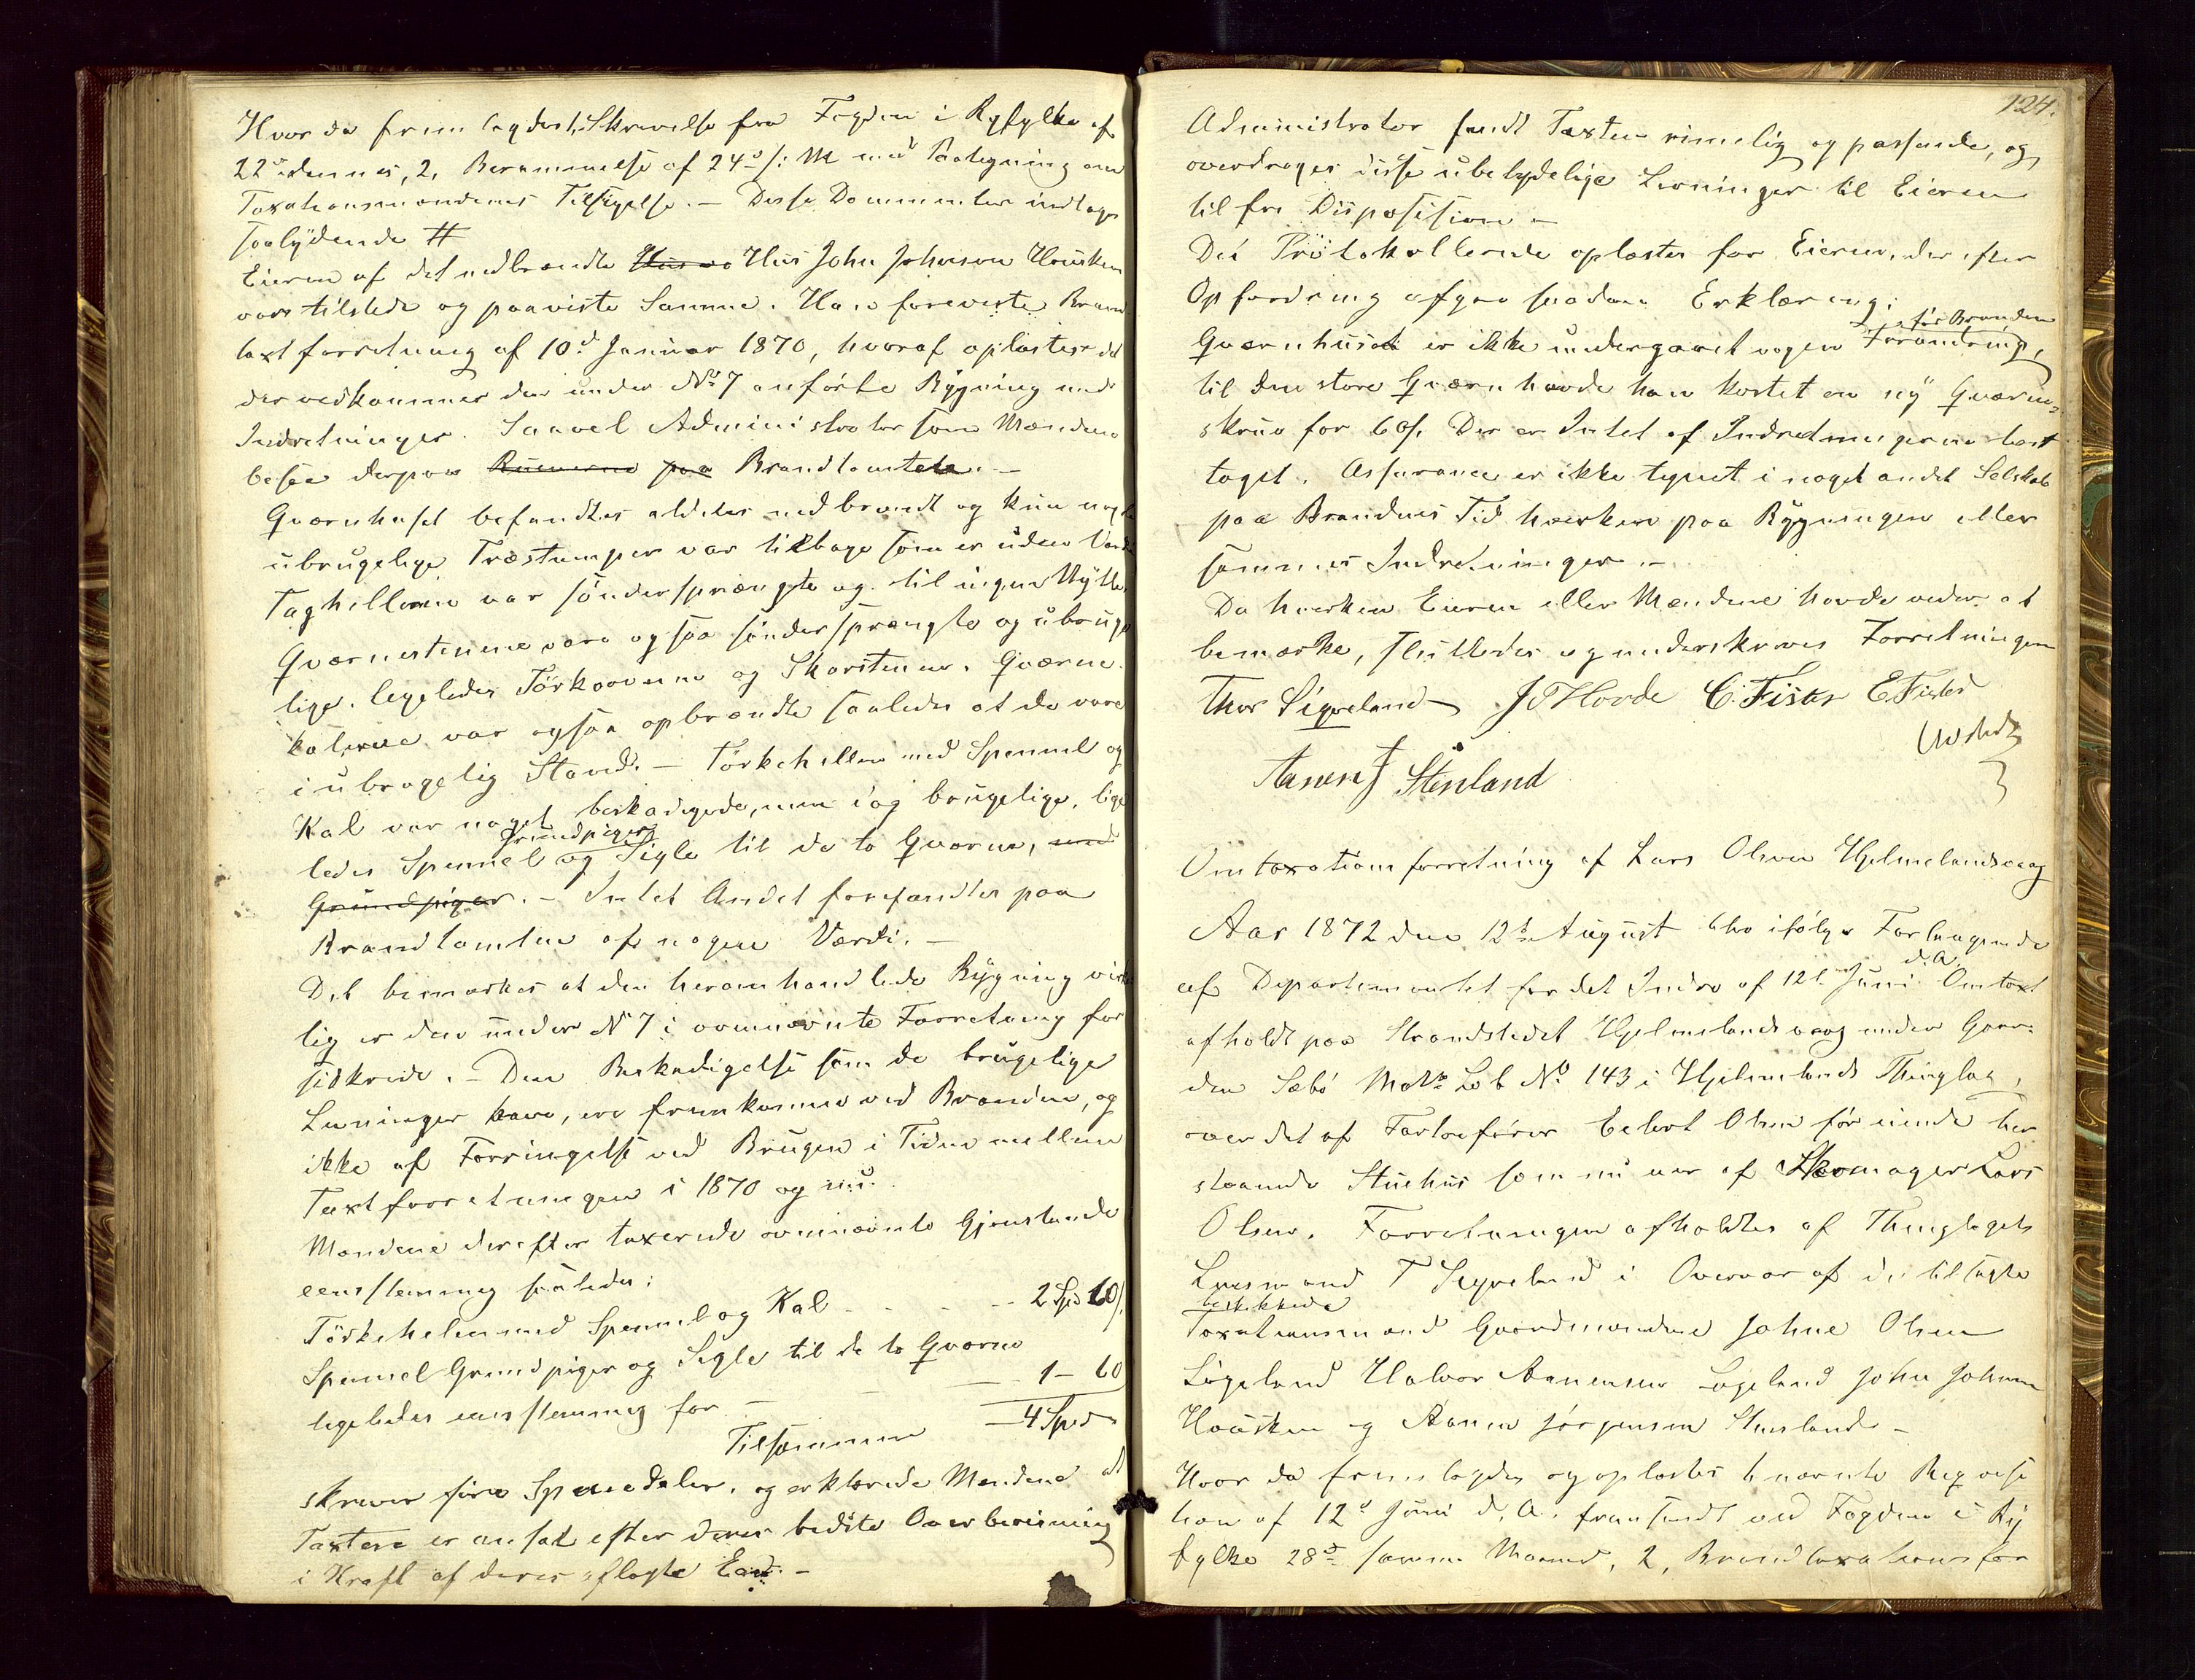 Hvor da fremlagdes 1, Skrivelse fra Fogden i Ryfylke af
22de dennes, 2, Berammelse af 24de s: M med Paategning om
Taxationsmændenes Tilsigelse. – Disse Documenter indtages
saalydende #
Eieren af det nedbrændte Hus John Johnson Housken
vare tilstede og paaviste Samme. Han foreviste Brand
taxtforretning af 10d Januar 1870, hvoraf oplæstes det
der vedkommer den under No 7 anførte Bygning med
Indretninger. Saavel Administrator som Mændene
besaa derpaa Brandtomten. –
Qværnhuset befandtes aldeles nedbrændt og kun nogle
ubrugelige Træstumper var tilbage som er uden Værdi
Taghellerne var søndersprængte og til ingen Nytte.
Qværnestenene vare ogsaa søndersprængte og ubruge
lige. ligeledes Tørkeovnene og Skorstenen. Qværne
kallene var ogsaa opbrændte saaledes at de vare
i ubrugelig Stand. – Tørkehellen med Spennel og
Kal var noget beskadigede, men dog brugelige, lige
ledes Spennel Grundpiger og Sigle til de to Qværne, med
Grundpiger. – Intet Andet forefandtes paa
Brandtomten af nogen Værdi. –
Det bemærkes at den heromhandlede Bygning virke
lig er den under No 7 i ovennævnte Forretning for
sikrede. – Den Beskadigelse som de brugelige
Levninger have, ere fremkomne ved Branden, og
ikke af Forringelse ved Brugen i Tiden mellem
Taxtforretningen i 1870 og nu.
Mændene derefter taxerede ovennævnte Gjenstande
eenstemmig saaledes:
Tørkehelen med Spennel og Kal - - - - 2 Spd 60 s.
Spennel Grundpiger og Sigle til de to Qværne
ligeledes eenstemmig for – – – 1 – 60
Tilsammen – 4 Spd
skriver fire Speciedaler, og erklærede Mændene at
Taxten er ansat efter deres bedste Overbeviisning
i Kraft af deres aflagte Eed. –
124.
Administrator fandt Taxten rimelig og passende, og
overdrages disse ubetydelige Levninger til Eieren
til fri Disposition –
Det Protokollerede oplæstes for Eieren, der efter
Opfordring afgav saadan Erklæring:
før Branden
Qværnhuset er ikke undergaaet nogen Forandring,
til den store Qværn havde han kostet en ny Qværn-
skrue for 60 s. Der er Intet af Indretningerne bort
taget. Assurance er ikke tegnet i noget andet Selskab
paa Brandens Tid hverken paa Bygningen eller
sammes Indretninger. –
Da hverken Eieren eller Mændene havde videre at
bemærke, sluttedes og underskreves Forretningen
Thor Sigveland J T Hovde C. Fister E. Fister
Aanen J Stenland
Omtaxationsforretning af Lars Olsen Hjelmelandsvaag
Aar 1872 den 12te August blev ifølge Forlangende
d. A.
af Departementet for det Indre af 12te Juni Omtaxt
afholdt paa Strandstedet Hjelmelandsvaag under Gaar-
den Sæbø Matr: Løb No 143 i Hjelmelands Thinglag,
over det af Eilert Olsen før eiende her
staaende Stuehus som nu eies af Skomager Lars
Olsen. Forretningen afholdtes af Thinglagets
Lensmand T Sigveland i Overvær af de tilsagte
beskikkede
Taxationsmænd Gaardmændene Johne Olsen
Sigeland Halvor Aanensen Sigeland John Johnsen
Housken og Aanen Jørgensen Steensland –
Hvor da fremlagdes og oplæstes 1 nævnte Reqvisi
tion af 12d Juni d. A. fremsendt ved Fogden i Ry
fylke 28de samme Maaned, 2, Brandtaxationsfor